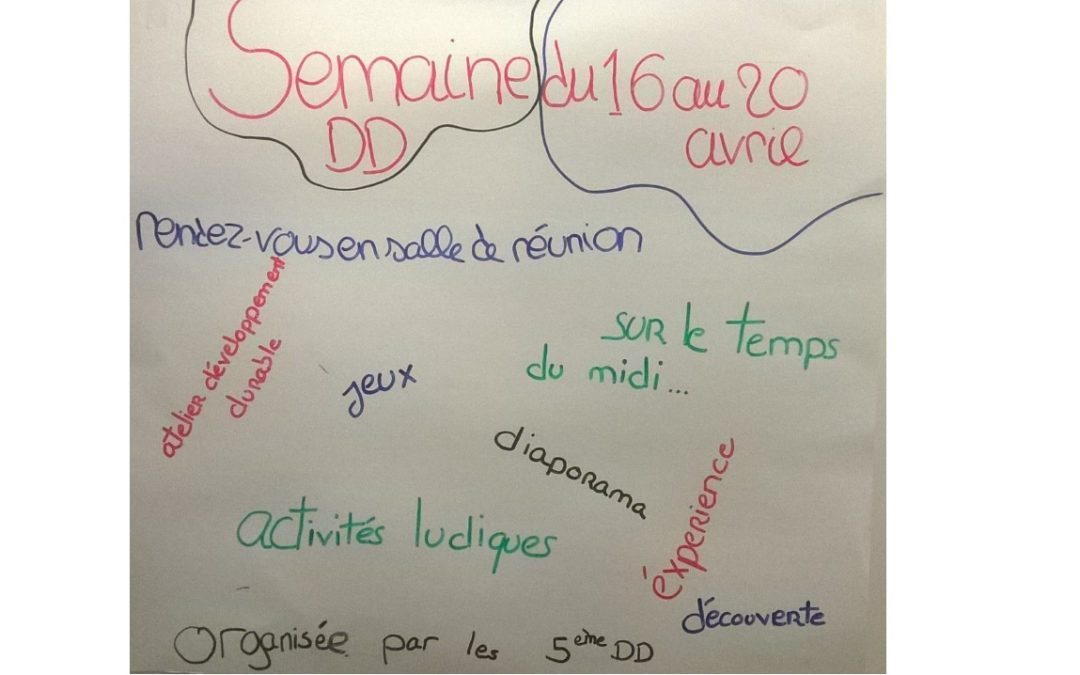 Semaine du 16 au 20
DD avril
rendez-vous en salle de réunion
atelier développement
durable
sur le temps
du midi...
jeux
diaporama
expérience
activités ludiques
découverte
Organisée par les 5ème DD